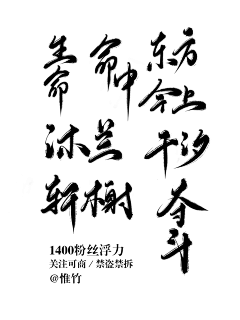 生命
命中
东方
今上
沐兰
轩榭
干汐
奋斗
1400粉丝浮力
关注可商 / 禁盗禁拆
@惟竹